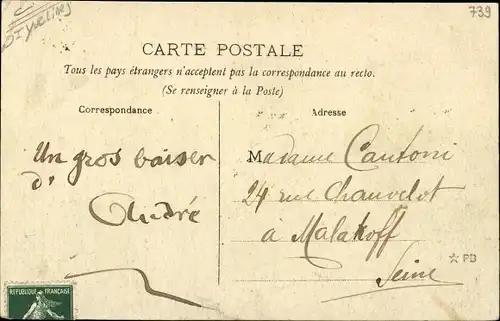 Yvelines
739
CARTE POSTALE
Tous les pays étrangers n'acceptent pas la correspondance au recto.
(Se renseigner à la Poste)
Correspondance
Adresse
Un gros baiser
d'
André
Madame Cantoni
24 rue Chauvelot
à Malakoff
Seine
☆ PB
REPUBLIQUE FRANÇAISE